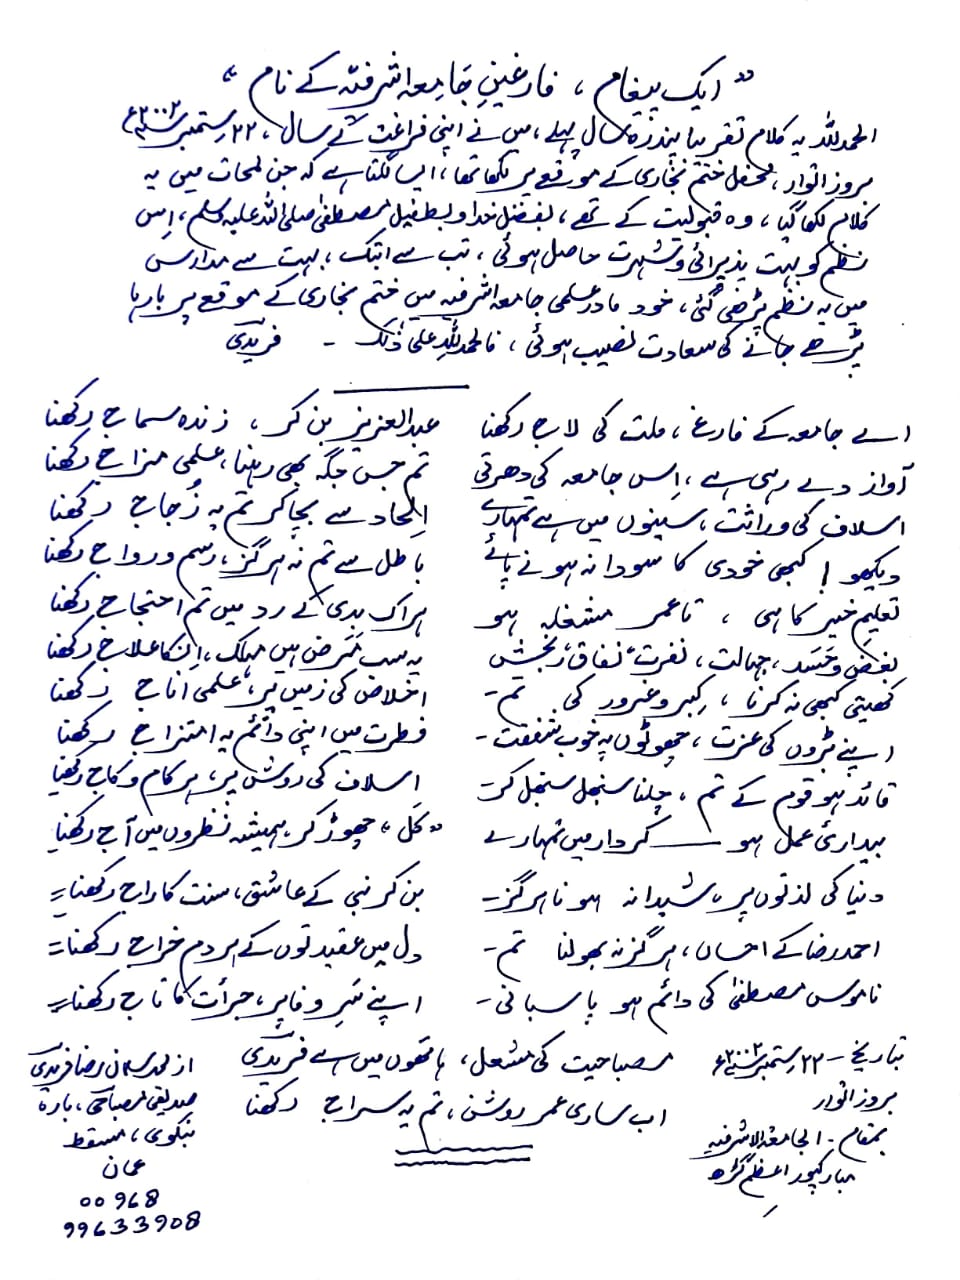 ”ایک پیغام، فارغینِ جامعہ اشرفیہ کے نام“
الحمدللہ یہ کلام تقریبا پندرہ سال پہلے، میں نے اپنی فراغت کے سال، ۲۲ ستمبر ۲۰۰۲ء
بروز اتوار، محفل ختم بخاری کے موقع پر لکھا تھا، ایسا لگتا ہے کہ جن لمحات میں یہ
کلام لکھا گیا، وہ قبولیت کے تھے، بفضل خدا و بطفیل مصطفیٰ صلی اللہ علیہ وسلم، اِس
نظم کو بہت پذیرائی و شہرت حاصل ہوئی، تب سے ابتک، بہت سے مدارس
میں یہ نظم پڑھی گئی، خود مادر علمی جامعہ اشرفیہ میں ختم بخاری کے موقع پر بارہا
پڑھے جانے کی سعادت نصیب ہوئی، فالحمدللہ علیٰ ذلک - فریدی
اے جامعہ کے فارغ، ملت کی لاج رکھنا عبدالعزیز بن کر، زندہ سماج رکھنا
آواز دے رہی ہے، اِس جامعہ کی دھرتی تم جس جگہ بھی رہنا، علمی مزاج رکھنا
اسلاف کی وراثت، سینوں میں ہے تمہارے الحاد سے بچا کر تم یہ زُجاج رکھنا
دیکھو! کبھی خودی کا سودا نہ ہونے پائے باطل سے تم نہ ہرگز، رسم و رواج رکھنا
تعلیمِ خیر کا ہی، تا عمر مشغلہ ہو ہر اک بدی کے رد میں تم احتجاج رکھنا
بغض و حَسَد، جہالت، نفرت، نفاق، رنجش یہ سب مَرَض ہیں مہلک، اِنکا علاج رکھنا
کھیتی کبھی نہ کرنا، کِبر و غرور کی تم - اخلاص کی زمیں پر، علمی اناج رکھنا
اپنے بڑوں کی عزت، چھوٹوں پہ خوب شفقت - فطرت میں اپنی دائم یہ امتزاج رکھنا
قائد ہو قوم کے تم، چلنا سنبھل سنبھل کر - اسلاف کی روش پر، ہر کام و کاج رکھنا
بیداریٔ عمل ہو کردار میں تمہارے ”کَل“ چھوڑ کر، ہمیشہ نظروں میں آج رکھنا
دنیا کی لذتوں پر، شیدا نہ ہونا ہرگز - بن کر نبی کے عاشق، سنت کا راج رکھنا -
احمد رضا کے احساں، ہرگز نہ بھولنا تم - دل میں عقیدتوں کے ہر دم خراج رکھنا -
ناموسِ مصطفیٰ کی دائم ہو پاسبانی - اپنے سَرِ وفا پر، جرأت کا تاج رکھنا -
مصباحیت کی مشعل، ہاتھوں میں ہے فریدی
اب ساری عمر روشن، تم یہ سراج رکھنا
بتاریخ - ۲۲ ستمبر ۲۰۰۲ء
بروز اتوار
بمقام - الجامعۃ الاشرفیہ
مبارکپور اعظم گڑھ
از محمد سلمان رضا فریدی
صدیقی مصباحی، بارہ
بنکوی، مسقط
عمان
00968
99633908